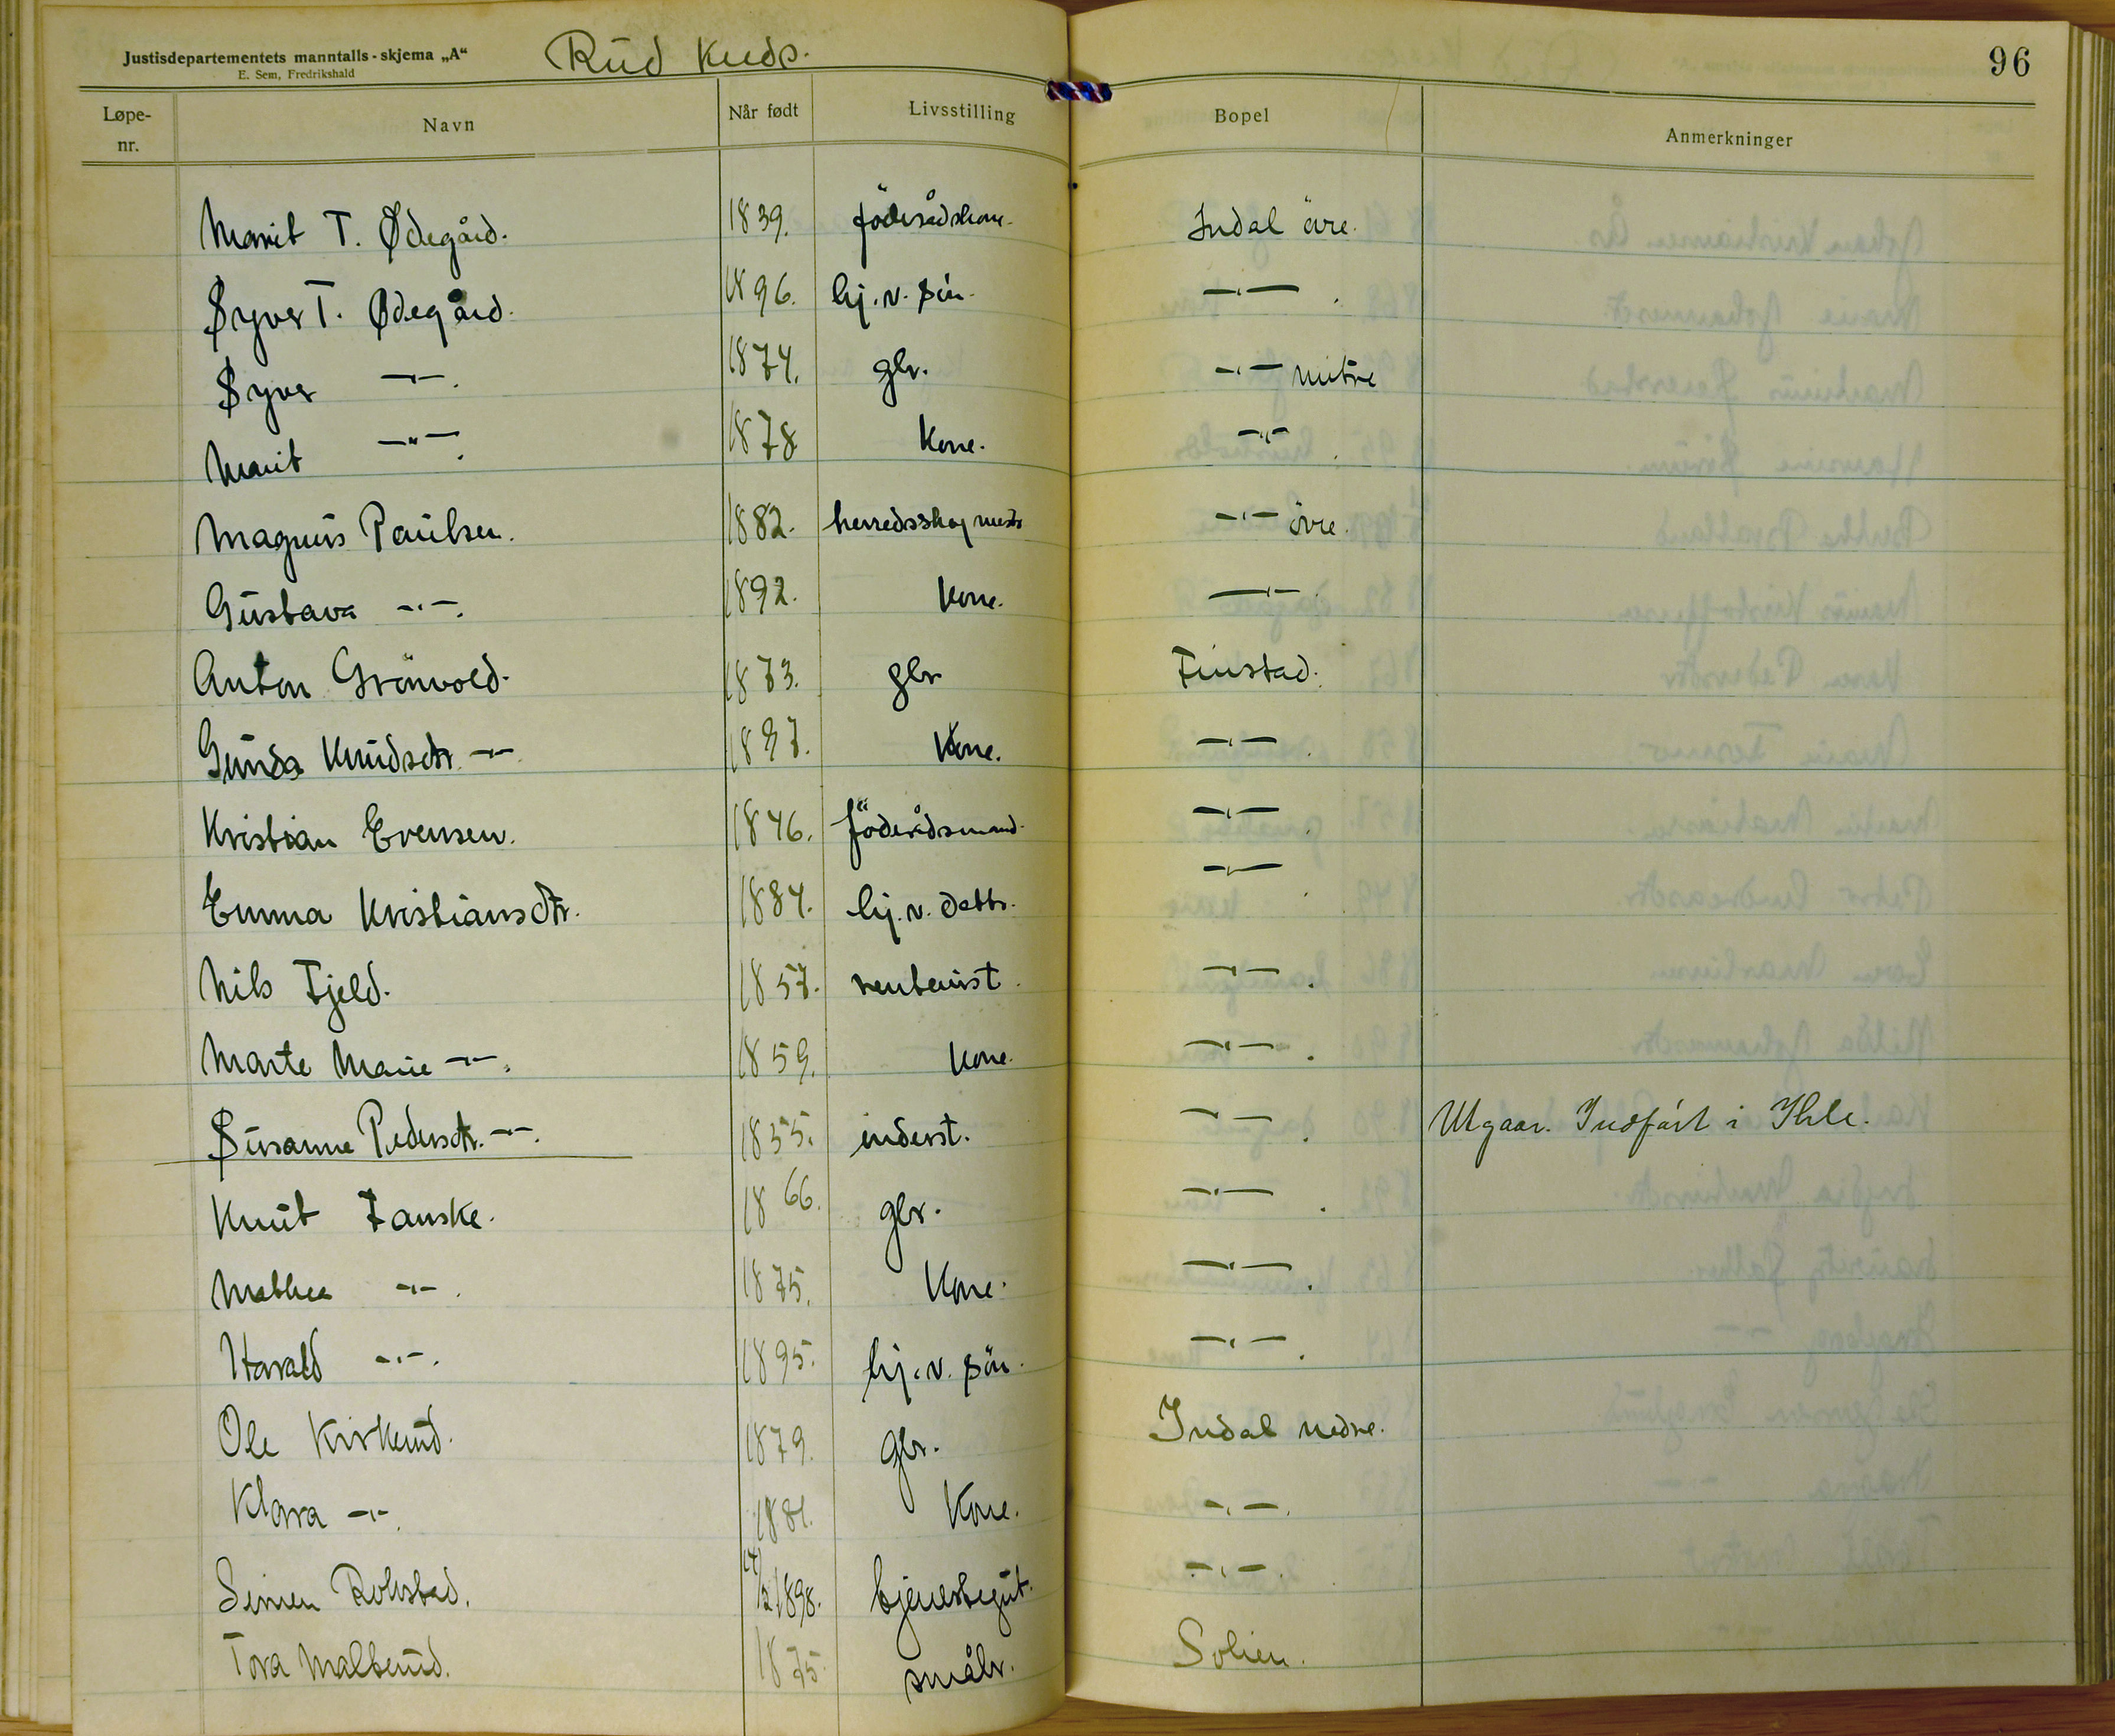 Justisdepartementets manntalls-skjema „A“ Rud kreds. 96
E. Sem, Fredrikshald
Løpe-nr. Navn Når født Livsstilling Bopel Anmerkninger
Marit T. Ødegård. 1839. föderådskone. Indal övre.
Syver T. Ødegård. 1896. hj. v. sön. —"— .
Syver —"— . 1874. gbr. —"— mitre
Marit —"— . 1878 Kone. —"— .
Magnus Paulsen. 1882. herredsskogmester —"— övre.
Gustava —"— . 1892. Kone. —"— .
Anton Grönvold. 1873. gbr Finstad.
Gunda Knudsdtr. —"— 1897. Kone. —"— .
Kristian Evensen. 1846. föderådsmand. —"— .
Emma Kristiansdtr. 1884. hj. v. dattr. —"— .
Nils Fjeld. 1857. rentenist. —"— .
Marte Marie —"— . 1859. Kone. —"— .
Susanne Pedersdtr. —"— . 1855. inderst. —"— . Utgaar. Indført i Ihle.
Knut Fanske. 1866. gbr. —"— .
Mathea —"— . 1875. Kone. —"— .
Harald —"— . 1895. hj. v. sön. —"— .
Ole Kirkerud. 1879. gbr. Indal nedre.
Klara —"— . 1881. Kone. —"— .
Simen Rolvstad. 1898. tjenestegut. —"— .
Tora Malterud. 1875. småbr. Solien.